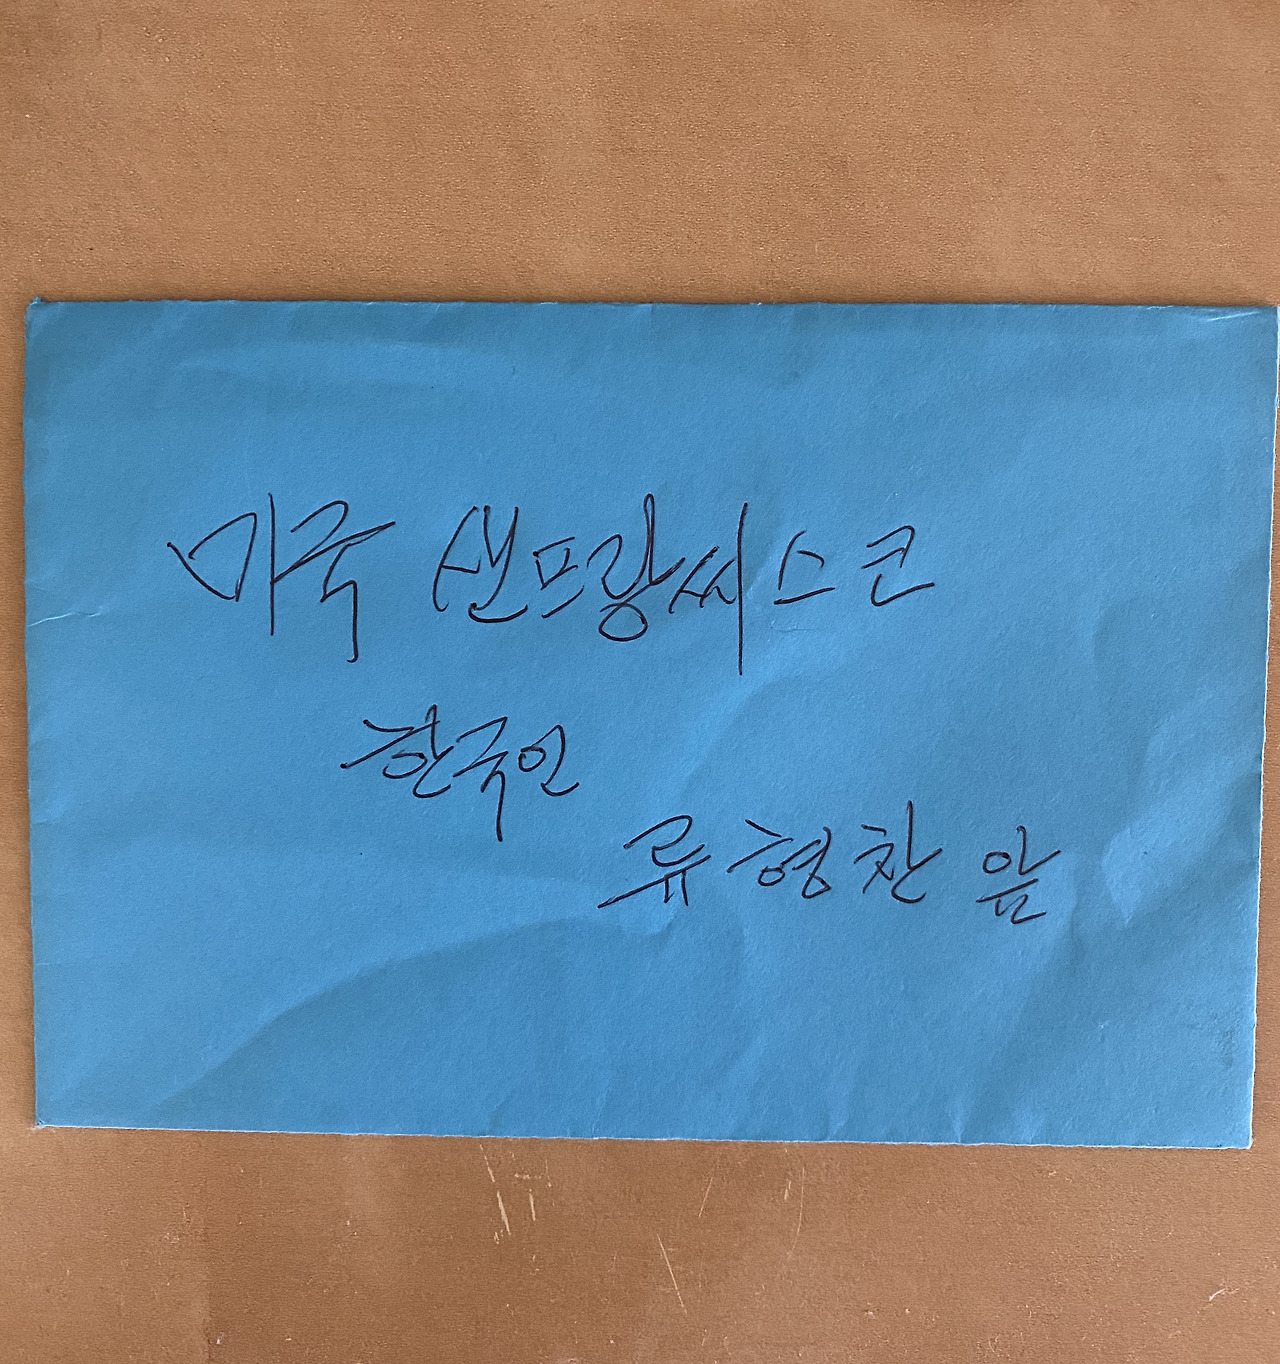 미국 샌프랑씨스코
한국인
류형찬 앞